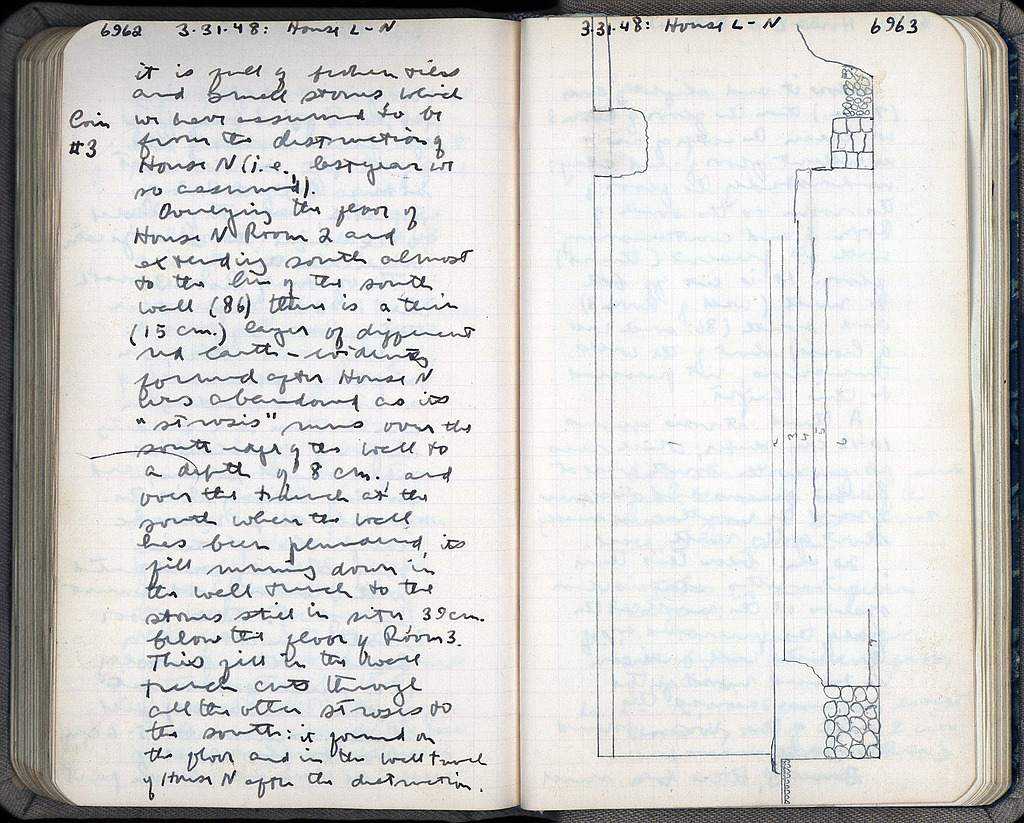 6962 3·31·48: House L-N
it is full of broken tiles
and small stones which
Coin we have assumed to be
#3 from the destruction of
House N (i.e., last year we
so assumed).
Overlying the floor of
House N Room 2 and
extending south almost
to the line of the south
wall (86) there is a thin
(15 cm.) layer of different
red earth - evidently
formed after House N
was abandoned as its
"strosis" runs over the
south edge of the wall to
a depth of 8 cm., and
over the trench at the
south where the wall
has been plundered, its
fill running down in
the wall trench to the
stones still in situ 39 cm.
below the floor of Room 3.
This fill in the wall
trench cuts through
all the other stroses to
the south: it formed on
the floor and in the wall trench
of House N after the destruction.
3·31·48: House L-N 6963
3
4
5
6